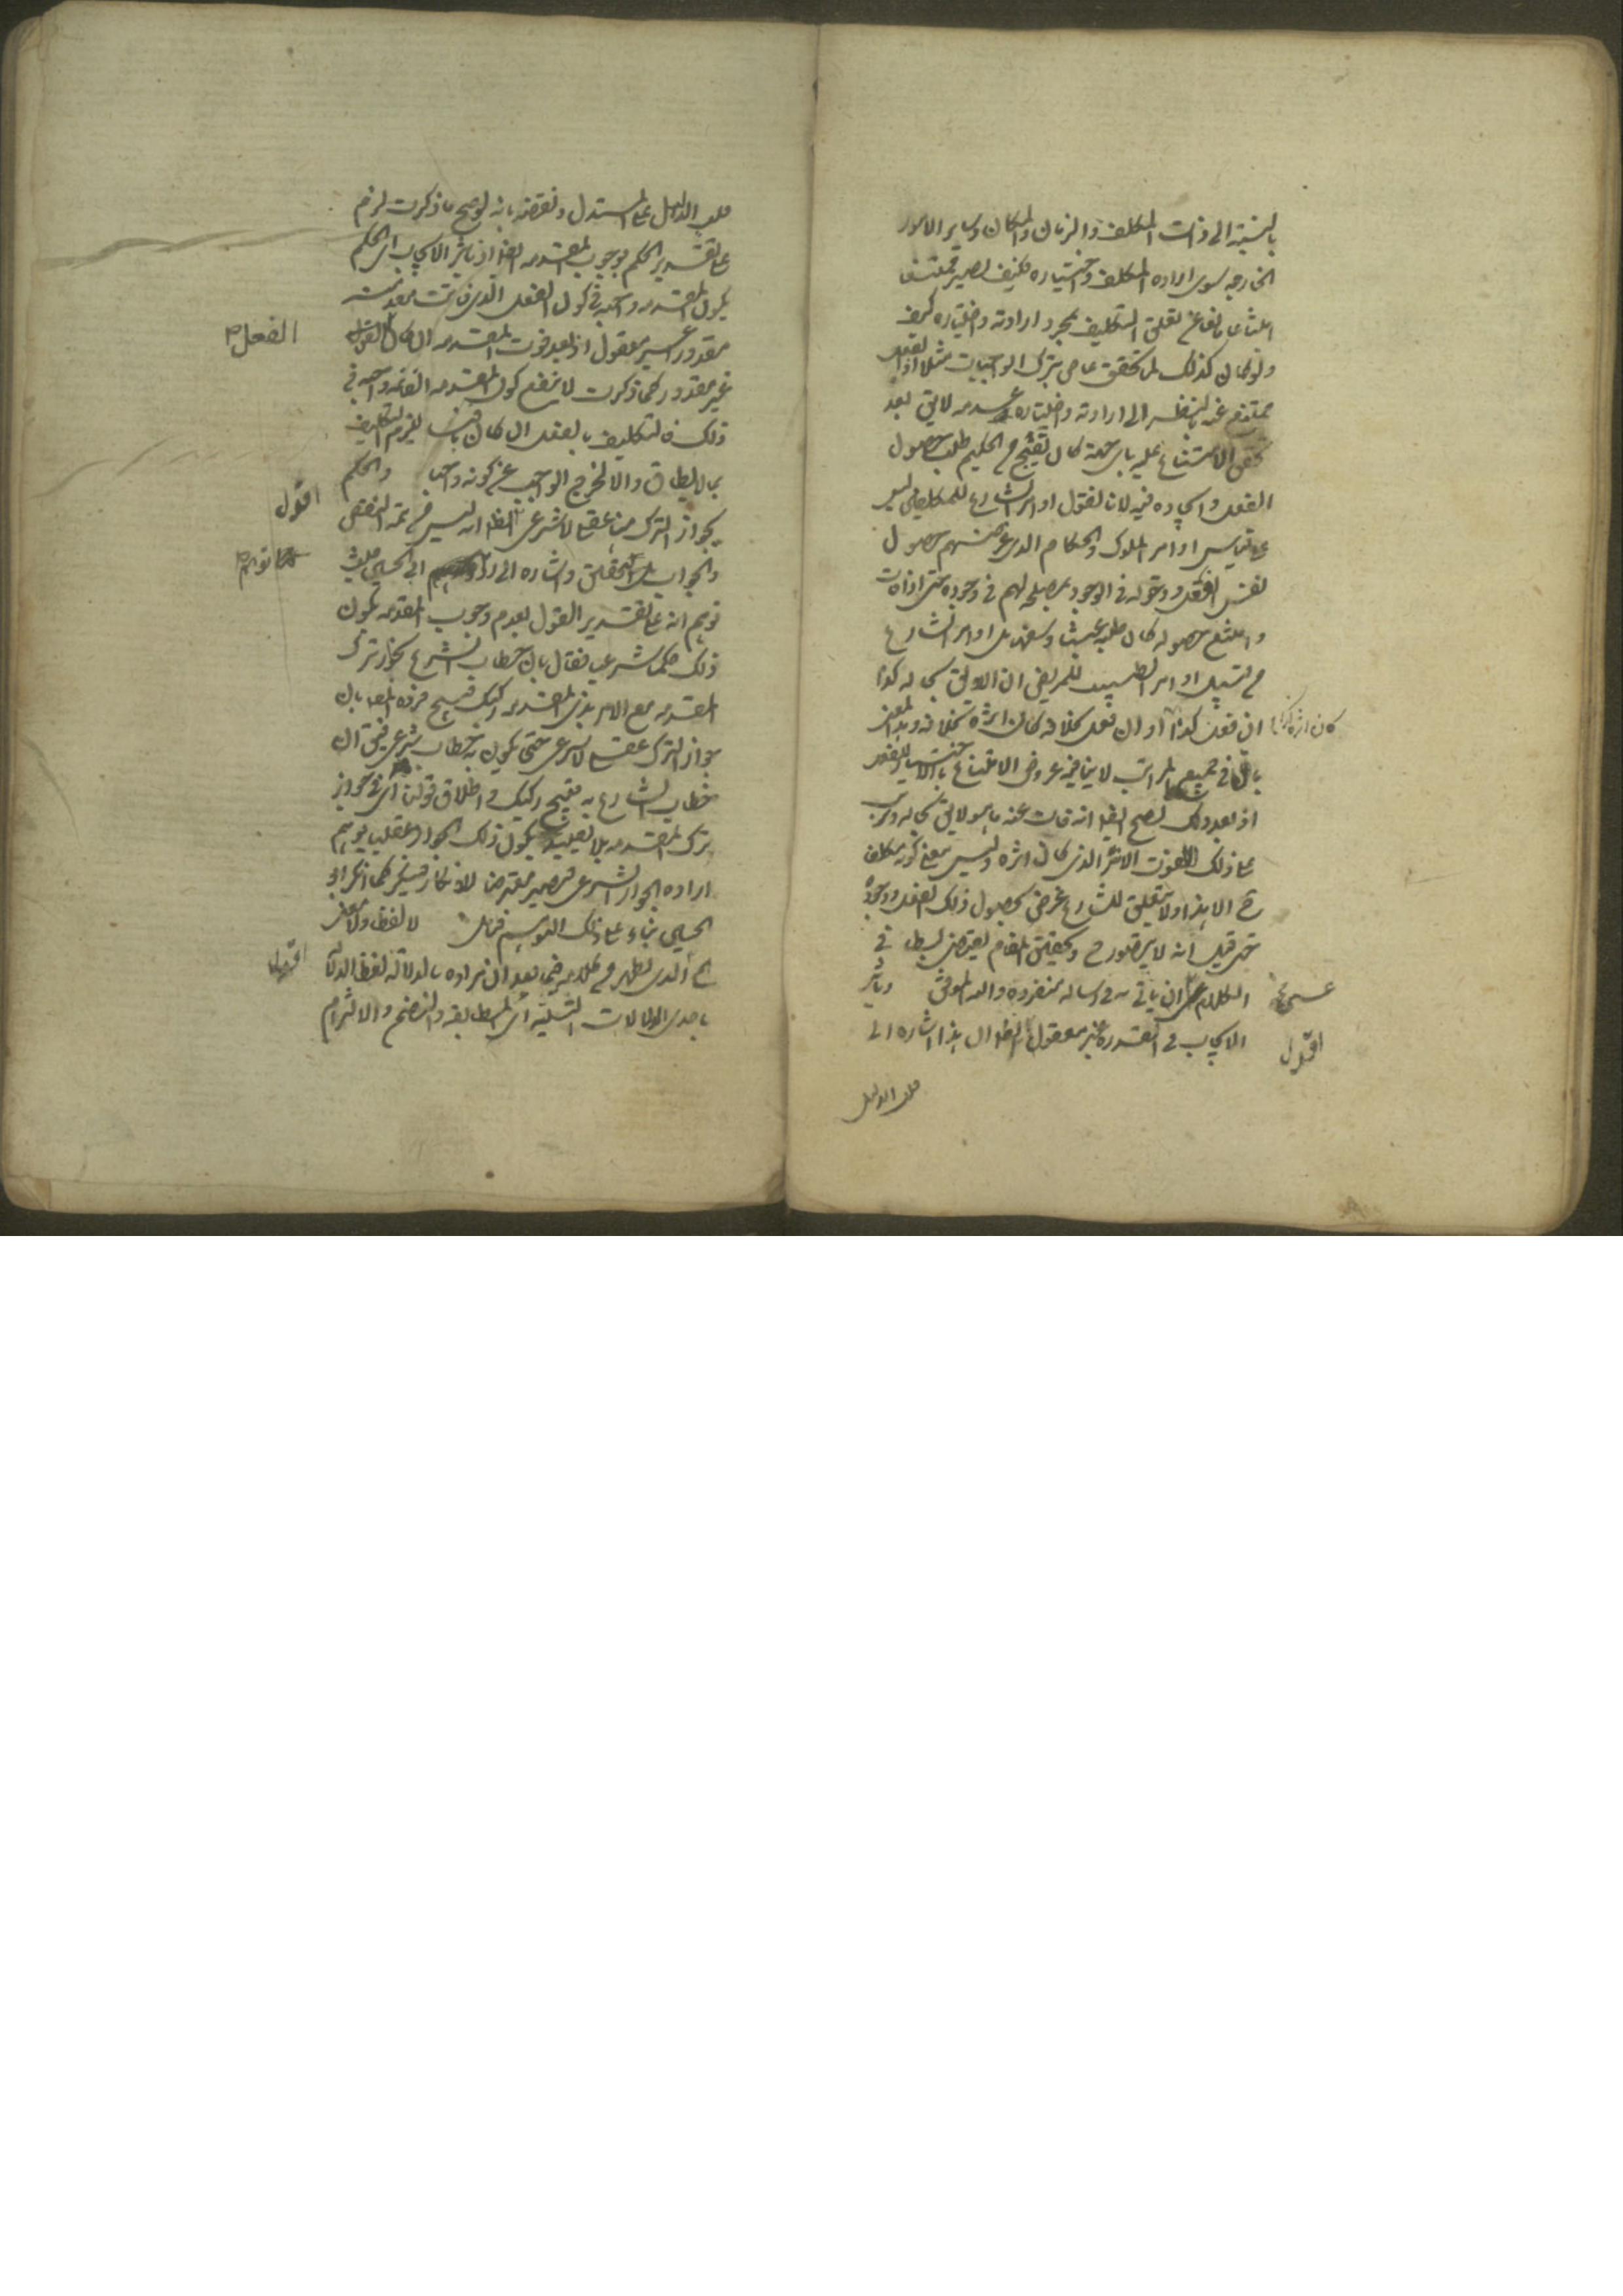 بالنسبة الى ذات المكلف والزمان والمكان وساير الامور
الخارجه سوى اراده المكلف واختياره فكيف يصير ممتنعا
امتناعا مانعا عن تعلق التكليف بمجرد ارادته واختياره كيف
ولو كان كذلك لما تحقق عاص بترك الواجبات مثلا اذ الفعل
ممتنع عنه بالنظر الى ارادته واختياره عدمه لا يق بعد
تحقق الامتناع عليه باى جهة كان يقبح من الحكيم طلب حصول
الفعل وايجاده فيه لانا نقول اوامر الشارع للمكلفين ليس
على قياس اوامر الملوك والحكام الذى غرضهم حصول
نفس الفعل ودخوله فى الوجود لمصلحة لهم فى وجوده حتى اذا فات
وامتنع حصوله كان طلبه عبثا وسفها بل اوامر الشارع
من قبيل اوامر الطبيب للمريض ان اللايق بحاله كذا
ان فعل كذا كان اثره كذا او ان فعل بخلافه كان اثره بخلافه وهذا المعنى
باق فى جميع المراتب لا ينافيه عروض الامتناع بالاختيار للفعل
اذ بعد ذلك يصح ايضا انه فات عنه ما هو لايق بحاله وترتب
على ذلك الفوت الاثر الذى كان اثره وليس معنى كونه مكلفا
ح الا هذا ولا يتعلق للشارع غرض بحصول ذلك الفعل ووجوده
حتى قيل انه لا يتصور ح وتحقيق المقام يقتضى بسطا فى
الكلام عسى ان ياتى به فى رساله منفرده والله الموفق وتاثير
الايجاب فى القدرة غير معقول اقول الظ ان هذا اشاره الى
قلب الدليل
قلب الدليل على المستدل ونقضه بانه لو صح ما ذكرت لزم
على تقدير الحكم بوجوب المقدمه ايضا اذ تاثير الايجاب اى الحكم
بكون المقدمه واجبه فى كون الفعل الذى فاتت مقدمته
مقدورا غير معقول اذ بعد فوت المقدمه ان كان الفعل
غير مقدور كما ذكرت لا ينفع كون المقدمه الفائته واجبه فى
ذلك فالتكليف بالفعل ان كان باقيا يلزم التكليف
بما لا يطاق والا لخرج الواجب عن كونه واجبا والحكم
بجواز الترك هنا عقلى لا شرعى اقول الظ انه ليس من تتمة النقض
والجواب بل تحقيق واشاره الى رد ما توهم ابى الحسين حيث
توهم انه على تقدير القول بعدم وجوب المقدمه يكون
ذلك حكما شرعيا فقال بان خطاب الشرع بجواز ترك
المقدمه مع الامر بذى المقدمه ركيك قبيح فرده المص بان
جواز الترك عقلى لا شرعى حتى يكون به خطاب شرعى فيق ان
خطاب الشارع به قبيح ركيك واطلاق قولنا اى فى جواز
ترك المقدمه بلا تقييد بكون ذلك الجواز عقليا يوهم
اراده الجواز الشرعى فيصير معترضا للانكار فينكر كما انكر ابو
الحسين بناء على ذلك التوهم فتامل لا لفظا ولا معنى
اقول الذى يظهر من كلامه فيما بعد ان مراده بالدلالة لفظا الدلالة
باحدى الدلالات الثلثة اى المطابقه والتضمن والالتزام